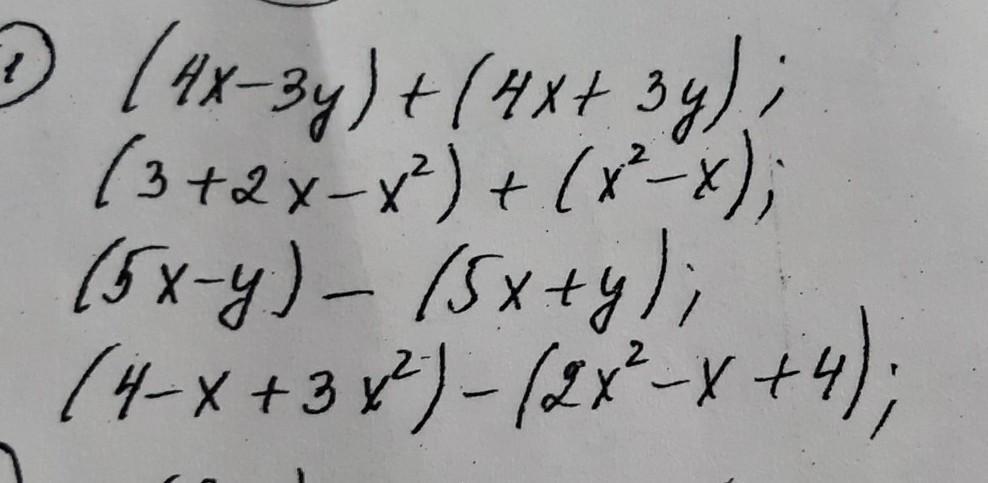 1 (4x-3y)+(4x+3y);
(3+2x-x²)+(x²-x);
(5x-y)-(5x+y);
(4-x+3x²)-(2x²-x+4);